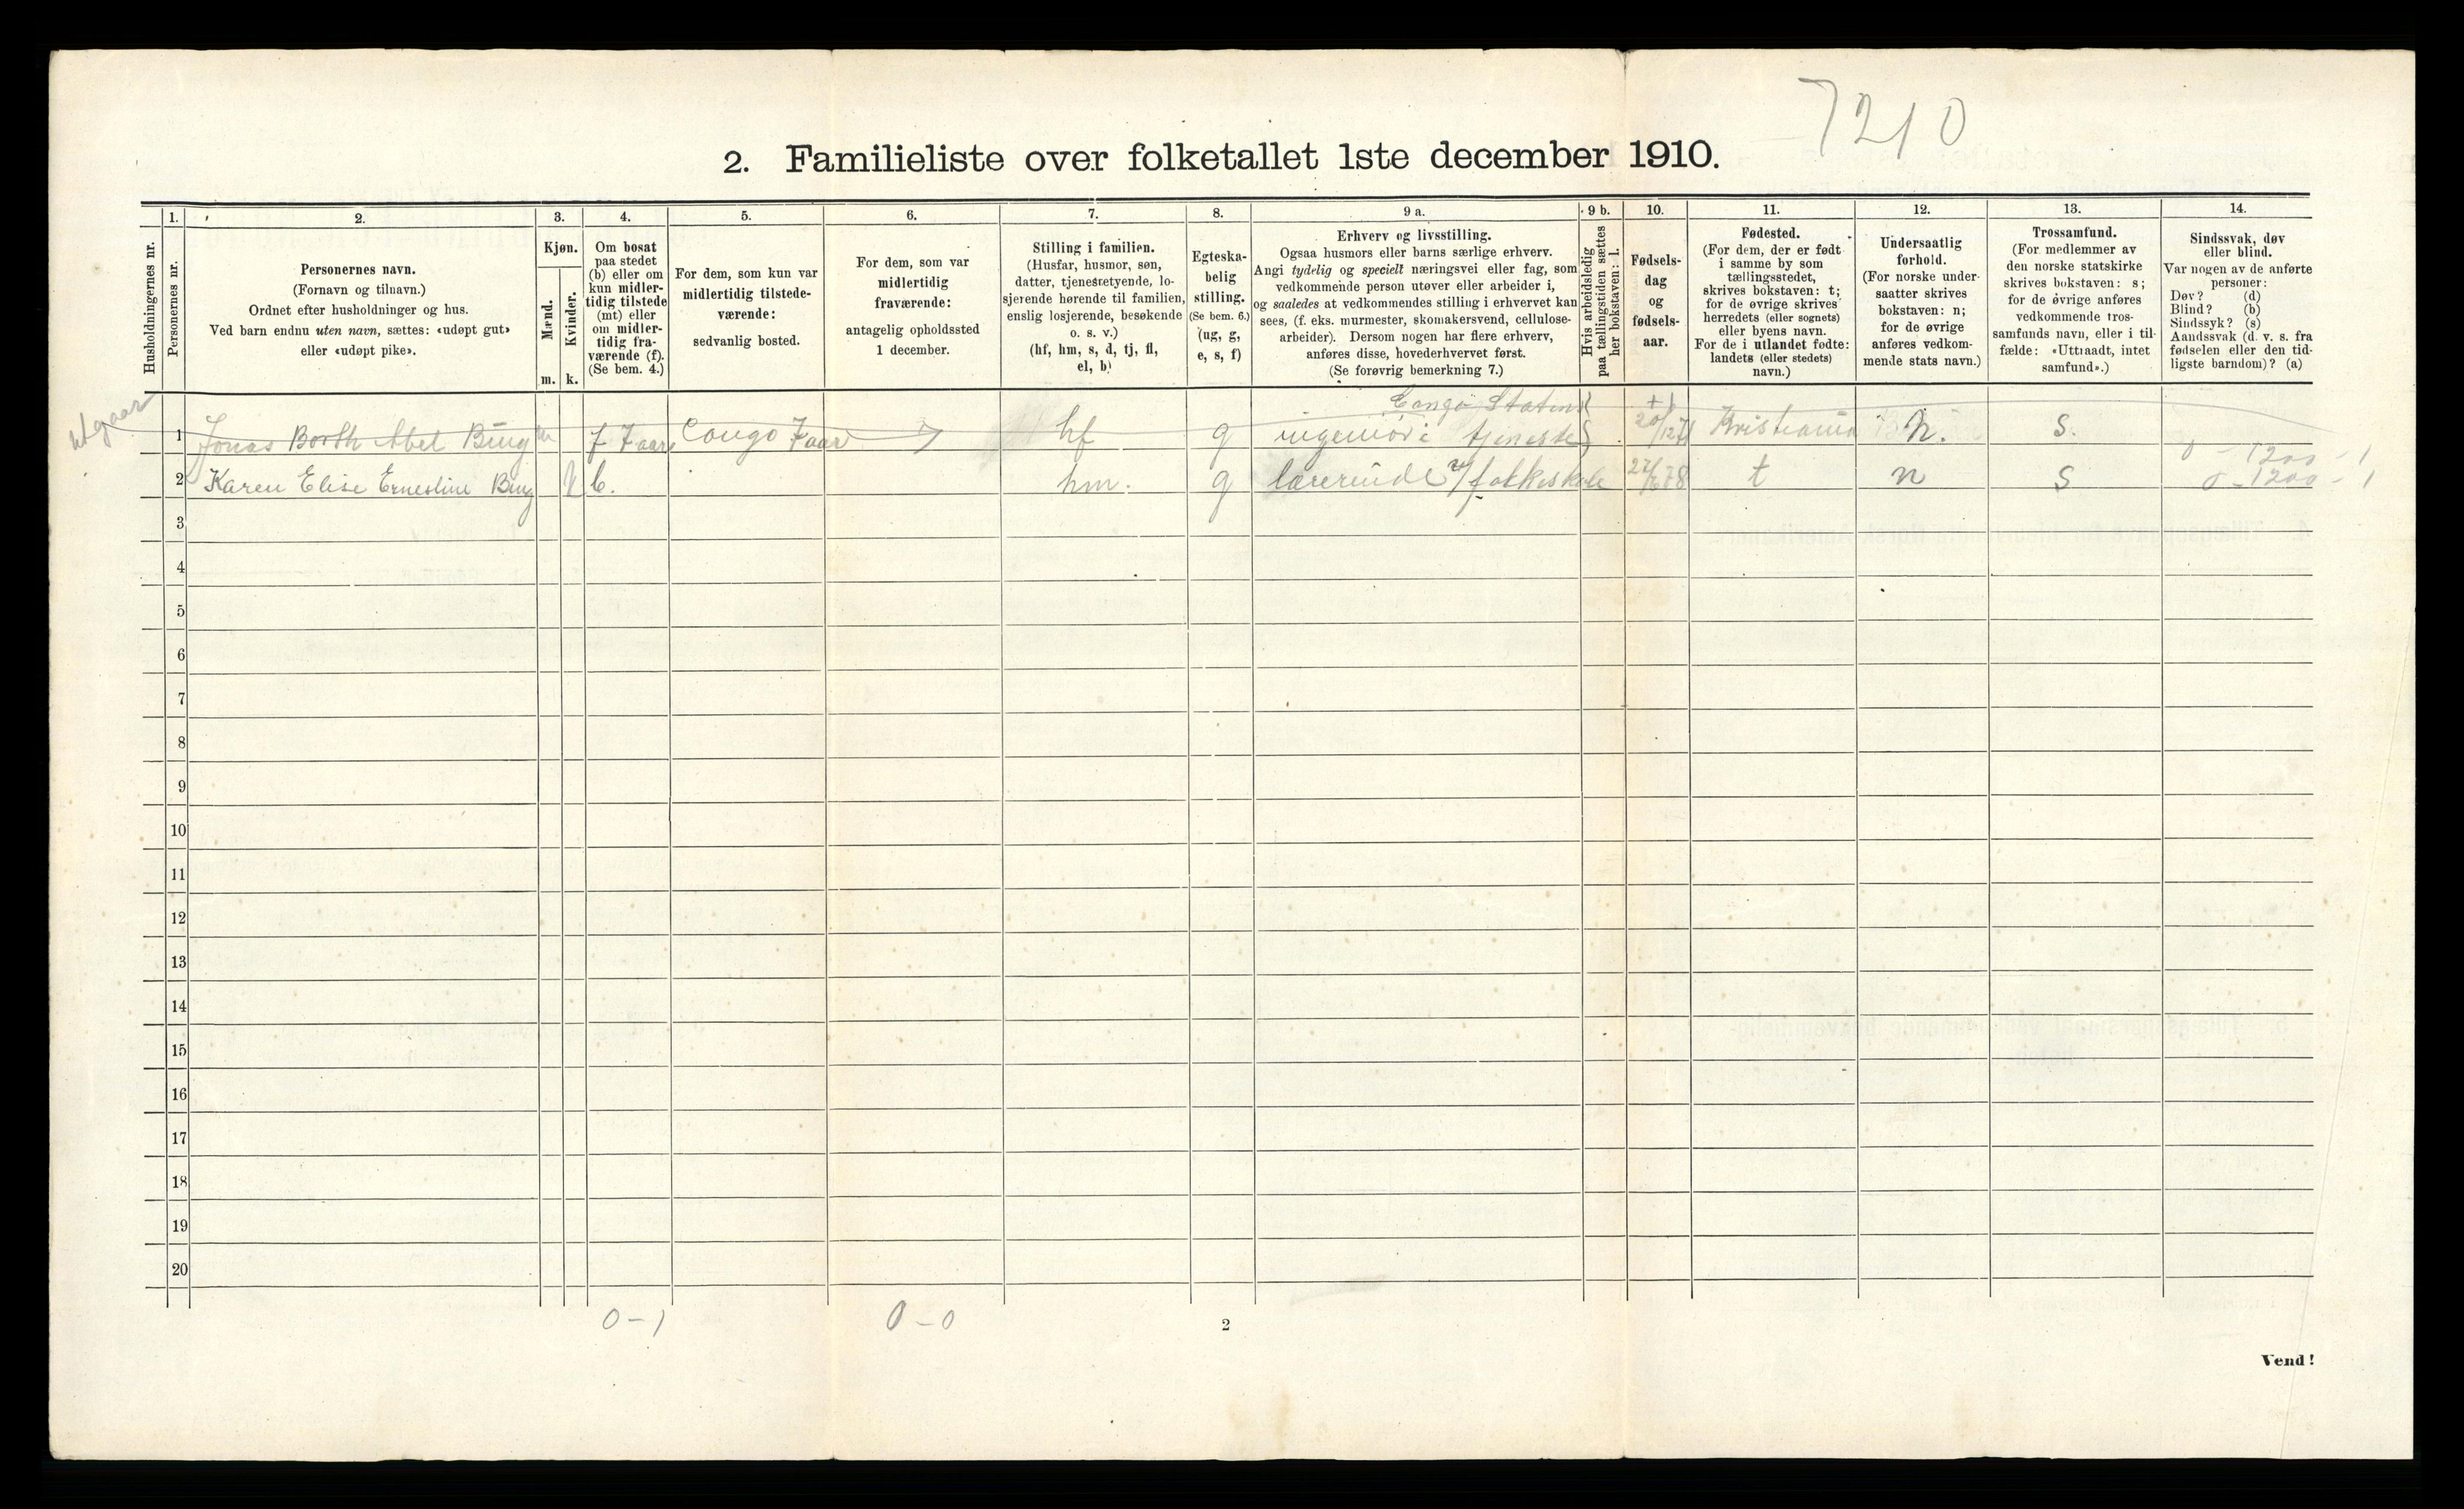 7210
2. Familieliste over folketallet 1ste december 1910.
Husholdningernes nr.
1.
Personernes nr.
2.
Personernes navn.
(Fornavn og tilnavn.)
Ordnet efter husholdninger og hus.
Ved barn endnu uten navn, sættes: «udøpt gut»
eller «udøpt pike».
3.
Kjøn.
Mænd.
Kvinder.
m. k.
4.
Om bosat
paa stedet
(b) eller om
kun midler-
tidig tilstede
(mt) eller
om midler-
tidig fra-
værende (f).
(Se bem. 4.)
5.
For dem, som kun var
midlertidig tilstede-
værende:
sedvanlig bosted.
6.
For dem, som var
midlertidig
fraværende:
antagelig opholdssted
1 december.
7.
Stilling i familien.
(Husfar, husmor, søn,
datter, tjenestetyende, lo-
sjerende hørende til familien,
enslig losjerende, besøkende
o. s. v.)
(hf, hm, s, d, tj, fl,
el, b)
8.
Egteska-
belig
stilling.
(Se bem. 6.)
(ug, g,
e, s, f)
9 a.
Erhverv og livsstilling.
Ogsaa husmors eller barns særlige erhverv.
Angi tydelig og specielt næringsvei eller fag, som
vedkommende person utøver eller arbeider i,
og saaledes at vedkommendes stilling i erhvervet kan
sees, (f. eks. murmester, skomakersvend, cellulose-
arbeider). Dersom nogen har flere erhverv,
anføres disse, hovederhvervet først.
(Se forøvrig bemerkning 7.)
9 b.
Hvis arbeidsledig
paa tællingstiden sættes
her bokstaven: l.
10.
Fødsels-
dag
og
fødsels-
aar.
11.
Fødested.
(For dem, der er født
i samme by som
tællingsstedet,
skrives bokstaven: t;
for de øvrige skrives
herredets (eller sognets)
eller byens navn.
For de i utlandet fødte:
landets (eller stedets)
navn.)
12.
Undersaatlig
forhold.
(For norske under-
saatter skrives
bokstaven: n;
for de øvrige
anføres vedkom-
mende stats navn.)
13.
Trossamfund.
(For medlemmer av
den norske statskirke
skrives bokstaven: s;
for de øvrige anføres
vedkommende tros-
samfunds navn, eller i til-
fælde: «Uttraadt, intet
samfund».)
14.
Sindssvak, døv
eller blind.
Var nogen av de anførte
personer:
Døv? (d)
Blind? (b)
Sindssyk? (s)
Aandssvak (d. v. s. fra
fødselen eller den tid-
ligste barndom)? (a)
utgaar
Congo Statens
1 Jonas Borth Abel Bing m f 7 aar Congo 7 aar hf g ingeniør i tjeneste Kristiania n. s.
0 - 1200 - 1
2 Karen Elise Ernestine Bing k b. hm. g lærerinde v/ folkeskole t n s 0 - 1200 - 1
3
4
5
6
7
8
9
10
11
12
13
14
15
16
17
18
19
20
0 - 1
0 - 0
2
Vend!